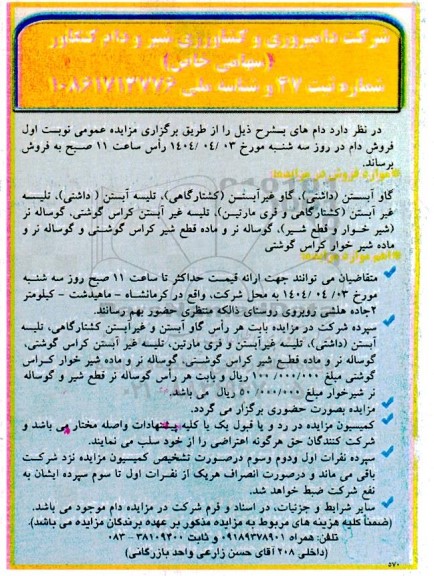 شرکت دامپروری و کشاورزی شیر و دام کنگاور
(سهامی خاص)
شماره ثبت ۴۷ و شناسه ملی ۱۰۸۶۱۷۱۲۷۷۶
در نظر دارد دام های بشرح ذیل را از طریق برگزاری مزایده عمومی نوبت اول
فروش دام در روز سه شنبه مورخ ۰۳ /۰۴ /۱۴۰۴ رأس ساعت ۱۱ صبح به فروش
برساند.
*موارد فروش در مزایده:
گاو آبستن (داشتی)، گاو غیرآبستن (کشتارگاهی)، تلیسه آبستن ( داشتی)، تلیسه
غیر آبستن (کشتارگاهی و فری مارتین)، تلیسه غیر آبستن کراس گوشتی، گوساله نر
(شیر خوار و قطع شیر)، گوساله نر و ماده قطع شیر کراس گوشتی و گوساله نر و
ماده شیر خوار کراس گوشتی
*اهم موارد مزایده:
متقاضیان می توانند جهت ارائه قیمت حداکثر تا ساعت ۱۱ صبح روز سه شنبه
مورخ ۰۳/ ۰۴ /۱۴۰۴ به محل شرکت، واقع در کرمانشاه - ماهیدشت - کیلومتر
۲جاده هلشی روبروی روستای ذالکه منتظری حضور بهم رسانند.
سپرده شرکت در مزایده بابت هر رأس گاو آبستن و غیرآبستن کشتارگاهی، تلیسه
آبستن (داشتی)، تلیسه غیرآبستن و فری مارتین، تلیسه غیر آبستن کراس گوشتی،
گوساله نر و ماده قطع شیر کراس گوشتی، گوساله نر و ماده شیر خوار کراس
گوشتی مبلغ ۱۰۰/۰۰۰/۰۰۰ ریال و بابت هر رأس گوساله نر قطع شیر و گوساله
نر شیرخوار مبلغ ۵۰/۰۰۰/۰۰۰ ریال می باشد.
مزایده بصورت حضوری برگزار می گردد.
کمیسیون مزایده در رد و یا قبول یک یا کلیه پیشنهادات واصله مختار می باشد و
شرکت کنندگان حق هرگونه اعتراضی را از خود سلب می نمایند.
سپرده نفرات اول ودوم وسوم درصورت تشخیص کمیسیون مزایده نزد شرکت
باقی می ماند و درصورت انصراف هریک از نفرات اول تا سوم سپرده ایشان به
نفع شرکت ضبط خواهد شد.
سایر شرایط و جزئیات، در اسناد و فرم شرکت در مزایده دام موجود می باشد.
(ضمناً کلیه هزینه های مربوط به مزایده مذکور بر عهده برندگان مزایده می باشد).
تلفن: همراه ۰۹۱۸۹۳۷۸۹۰۱ و ثابت ۳۸۱۰۹۴۰۰ -۰۸۳
(داخلی ۲۰۸ آقای حسن زارعی واحد بازرگانی)
۵۷۰